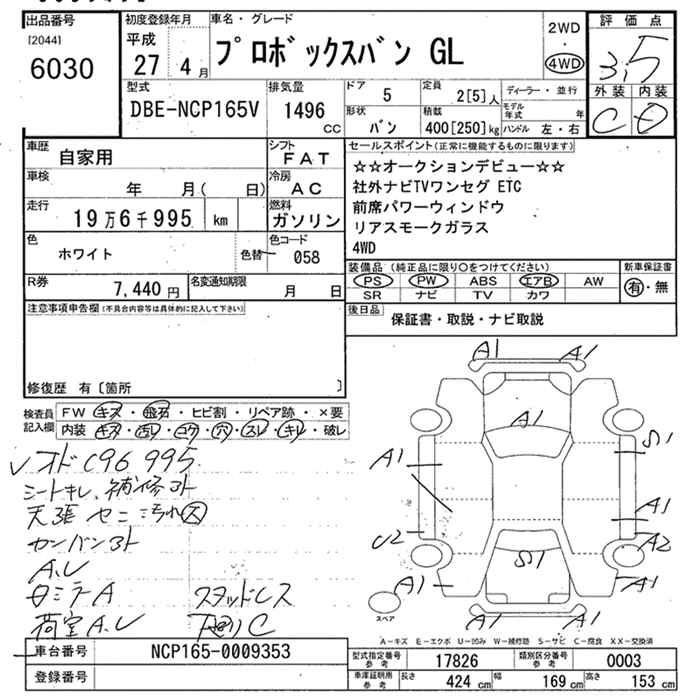 出品番号 初度登録年月 車名・グレード 評価点
[2044] 平成 プロボックスバン GL 2WD・4WD 3.5
6030 27 4月 外装 内装
型式 排気量 ドア 5 定員 2[5]人 ディーラー・並行 C D
DBE-NCP165V 1496 CC 形状 バン 積載 400[250]kg モデル年式 年 ハンドル 左・右
車歴 自家用 シフト FAT セールスポイント(正常に機能するものに限ります)
車検 年 月( 日) 冷房 AC ☆☆オークションデビュー☆☆
走行 19万6千995 km 燃料 ガソリン 社外ナビTVワンセグ ETC
前席パワーウィンドウ
リアスモークガラス
4WD
色 ホワイト 色替 色コード 058
装備品 (純正品に限り○をつけてください) 新車保証書
R券 7,440円 名変通知期限 月 日 PS PW ABS エアB AW 有・無
SR ナビ TV カワ
注意事項申告欄(不具合内容等は具体的に記入して下さい) 後日品 保証書・取説・ナビ取説
修復歴 有〔箇所 〕
検査員記入欄 FW キズ・飛石・ヒビ割・リペア跡・×要
内装 キズ・汚レ・コゲ・穴・スレ・キレ・破レ
オドC96995
シートキレ、補修ヨト
天張 セニ 汚れ大
カンバンヨト
A.U
スタッドレス
荷室A.U 下廻りC
A1 A1
A1
A1 S1
A1
U2 A2
S1
A1 A1
A1 A1
スペア
A-キズ E-エクボ U-凹み W-補修跡 S-サビ C-腐食 XX-交換済
車台番号 NCP165-0009353 型式指定番号 参考 17826 類別区分番号 参考 0003
登録番号 車庫証明用 参考 長さ 424 cm 幅 169 cm 高さ 153 cm